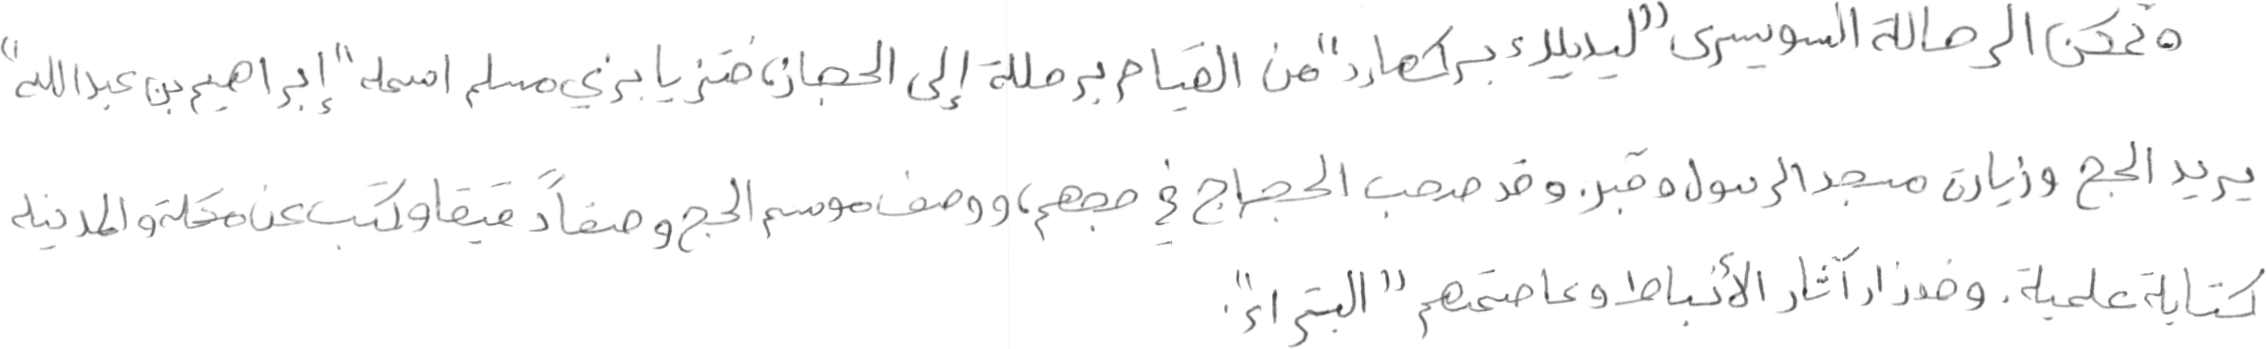 وتمكن الرحالة السويسرى "ليديلاء بركهارد" من القيام برحلة إلى الحجاز، فتزيا بزي مسلم اسمه "إبراهيم بن عبدالله"
يريد الحج وزيارة مسجد الرسول وقبر. وقد صحب الحجاج في حجهم، ووصف موسم الحج وصفاً دقيقا وكتب عن مكة والمدينه
كتابة علمية. وقد زار آثار الأنباط وعاصمتهم "البتراء".